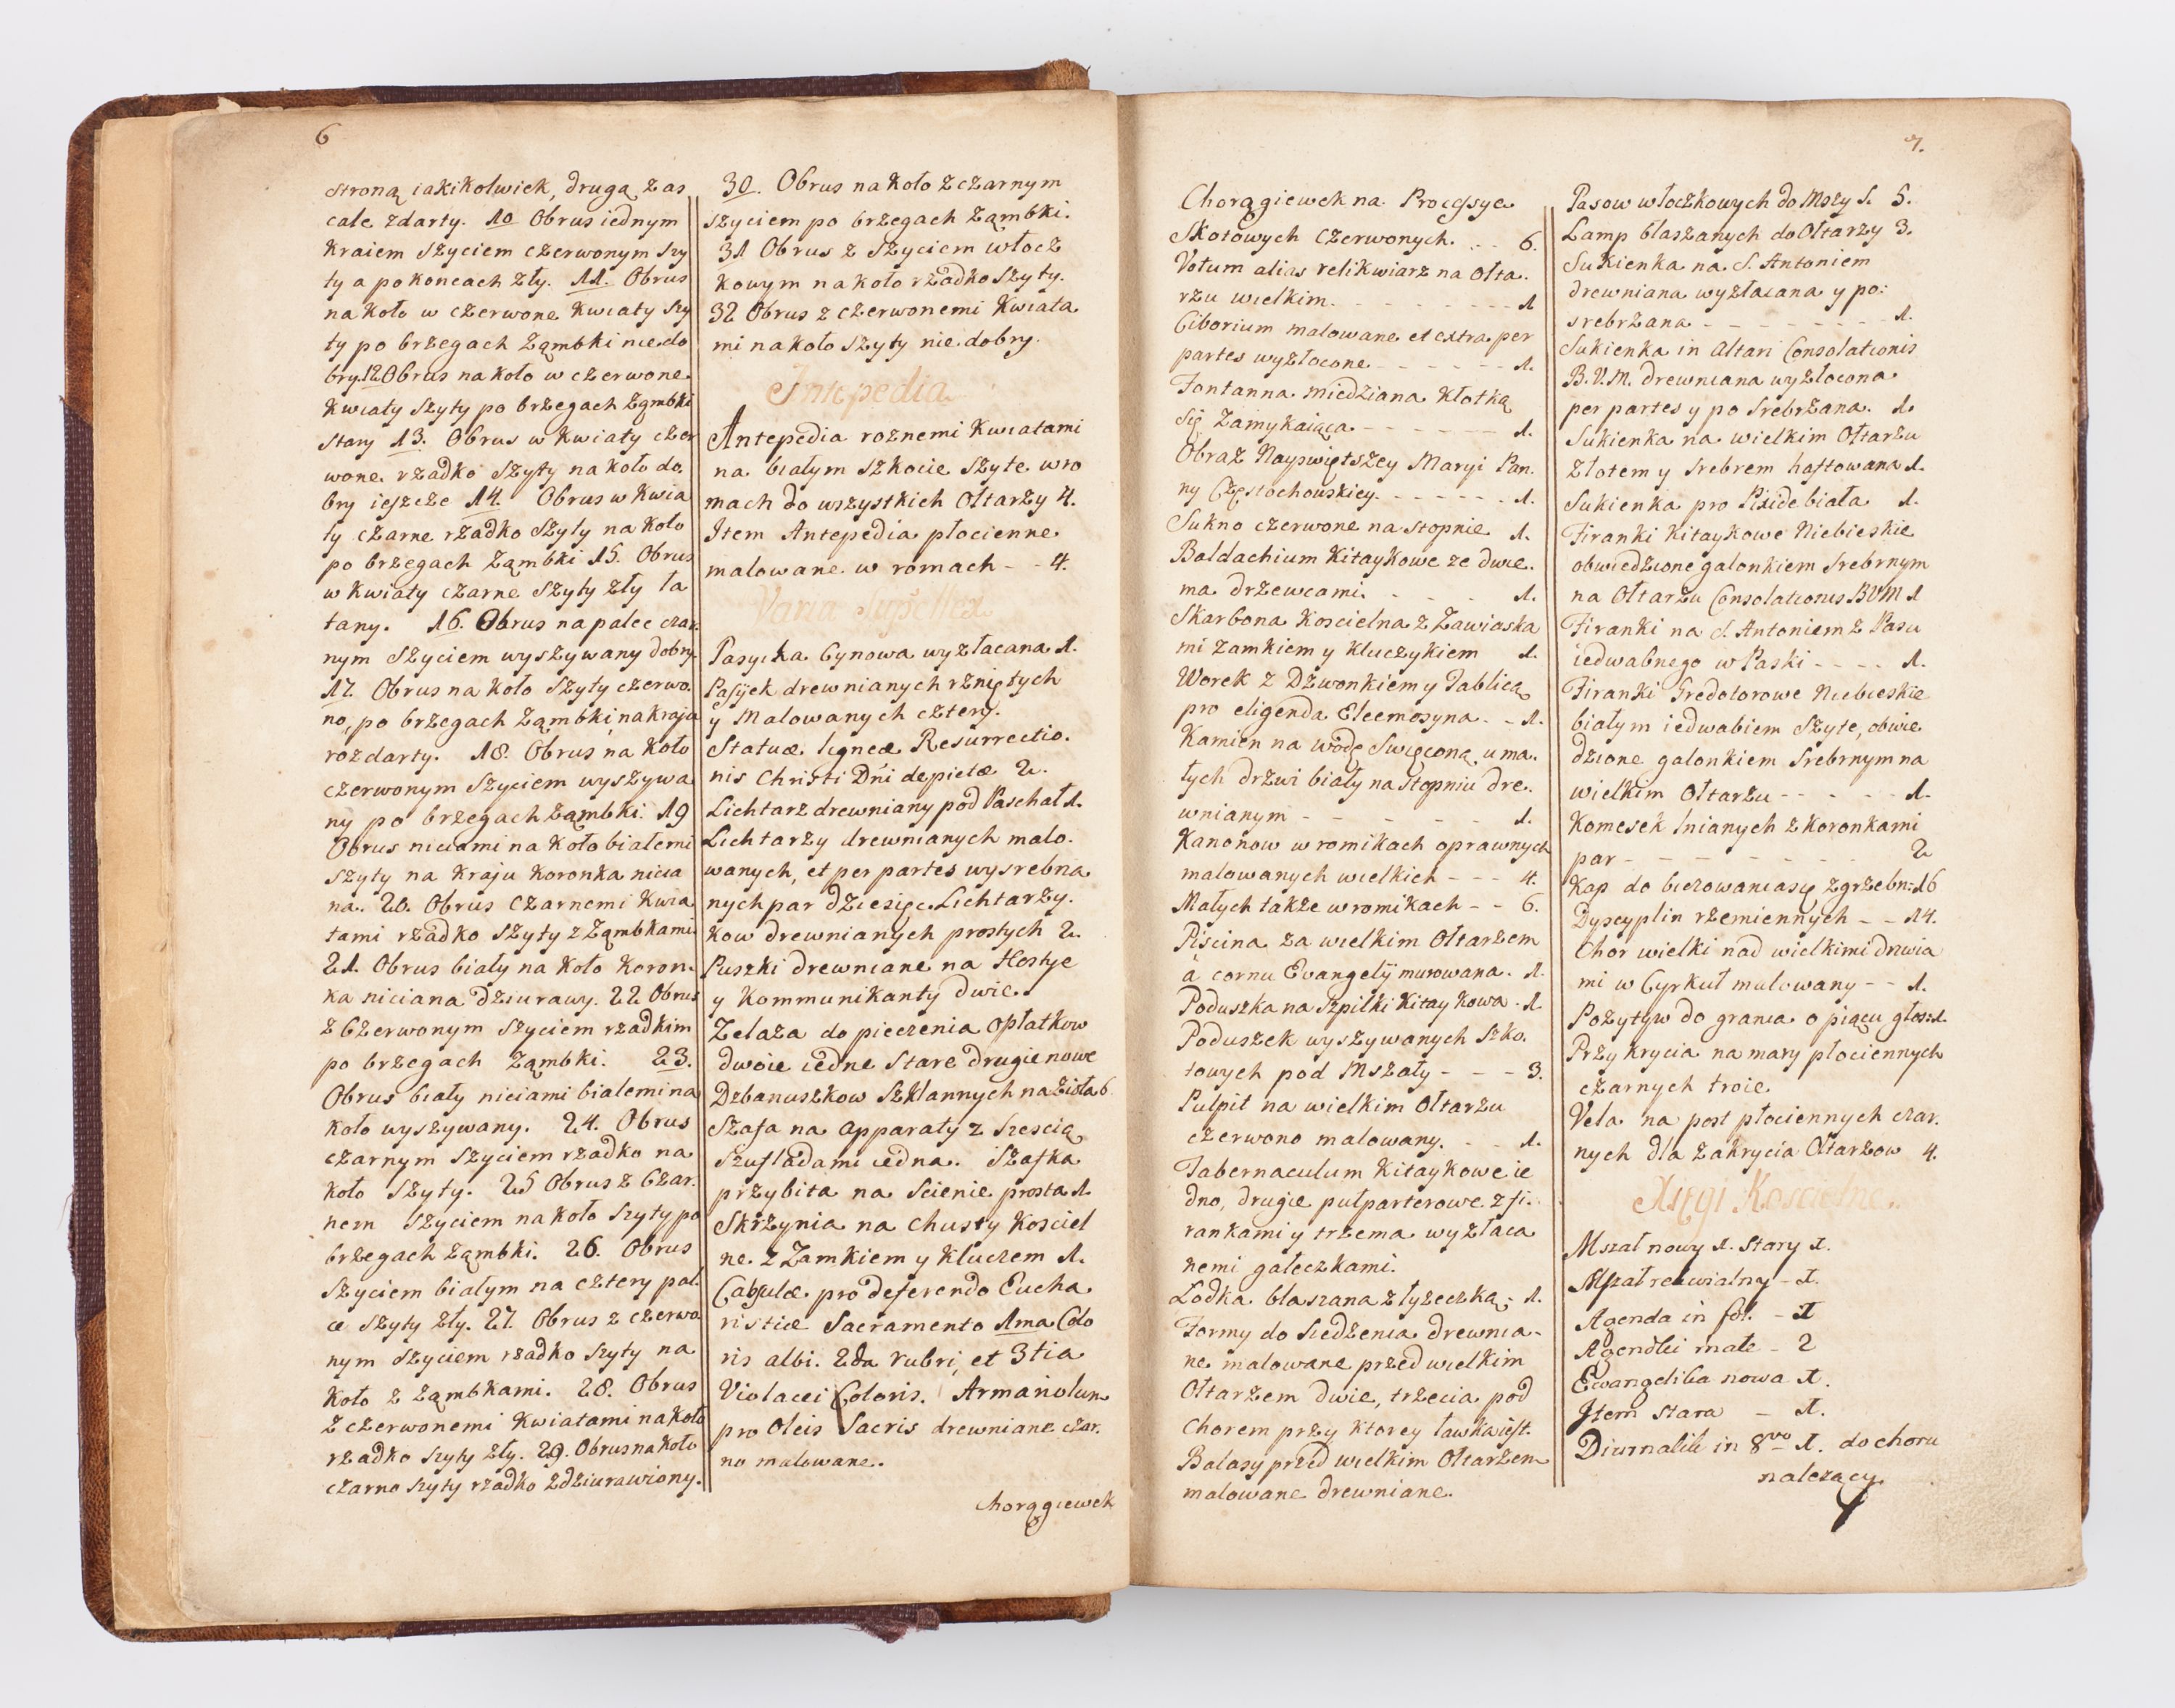 6
stroną iakikolwiek, drugą zas
cale zdarty. 10 Obrus iednym
kraiem szyciem czerwonym szy
ty a po koncach zły. 11. Obrus
na koło w czerwone kwiaty szy
ty po brzegach Ząmbki nie do
bry. 12 Obrus na koło w czerwone
kwiaty szyty po brzegach Ząmbki
stary 13. Obrus w kwiaty czer
wone rzadko szyty na koło do
bry ieszcze 14. Obrus w kwia
ty czarne rzadko szyty na koło
po brzegach Ząmbki 15. Obrus
w kwiaty czarne szyty zły ła
tany. 16. Obrus na palec czar
nym szyciem wyszywany dobry.
17. Obrus na koło szyty czerwo.
no, po brzegach Ząmbki, na kraju
rozdarty. 18. Obrus na koło
czerwonym szyciem wyszywa
ny po brzegach Ząmbki. 19
Obrus niciami na koło białemi
szyty na kraju koronka nicia
na. 20. Obrus czarnemi kwia
tami rzadko szyty z Ząmbkami
21. Obrus biały na koło koron.
ka niciana dziurawy. 22 Obrus
z Czerwonym szyciem rzadkim
po brzegach Ząmbki. 23.
Obrus biały niciami białemi na
koło wyszywany. 24. Obrus
czarnym szyciem rzadko na
koło szyty. 25 Obrus z Czar.
nem szyciem na koło szyty po
brzegach Ząmbki. 26. Obrus
szyciem białym na cztery pal.
ce szyty zły. 27. Obrus z czerwo
nym szyciem rzadko szyty na
koło z Ząmbkami. 28. Obrus
z czerwonemi kwiatami na koło
rzadko szyty zły. 29. Obrus na koło
czarno szyty rzadko zdziurawiony.
30. Obrus na koło z czarnym
szyciem po brzegach Ząmbki.
31 Obrus z szyciem włocz
kowym na koło rzadko szyty.
32 Obrus z czerwonemi kwiata
mi na koło szyty nie dobry.
Antepedia
Antepedia roznemi kwiatami
na białym szkocie szyte w ro
mach do wszystkich Ołtarzy 4.
Item Antepedia płocienne
malowane w romach - - 4.
Varia Supellex
Pasyika Cynowa wyzłacana 1.
Pasyjek drewnianych rzniętych
y Malowanych cztery.
Statuæ ligneæ Resurrectio.
nis Christi Dni depictæ 2.
Lichtarz drewniany pod Paschał 1.
Lichtarzy drewnianych malo.
wanych, et per partes wysrebrza
nych par dziesięc. Lichtarzy.
kow drewnianych prostych 2.
Puszki drewniane na Hostye
y Kommunikanty dwie.
Zelaza do pieczenia opłatkow
dwoie iedne stare drugie nowe
Dzbanuszkow szklannych na zioła 6
Szafa na apparaty z szescią
szufladami iedna. Szafka
przybita na scienie prosta 1.
Skrzynia na chusty Kosciel
ne z Zamkiem y kluczem 1.
Capsulæ pro deferendo Eucha
ristiæ Sacramento 1ma Colo
ris albi. 2da rubri, et 3tia
Violacei Coloris. Armariolum
pro Oleis Sacris drewniane czar.
no malowane.
Chorągiewek
7.
Chorągiewek na Procesye
Skotowych czerwonych. - - 6.
Votum alias relikwiarz na Ołta.
rzu wielkim. - - - - - - - - 1
Ciborium malowane et extra per
partes wyzłocone - - - - - - 1.
Fontanna miedziana kłotką
się Zamykaiąca - - - - - - 1.
Obraz Nayswiętszey Maryi Pan.
ny Częstochouskiey. - - - - - - 1.
Sukno czerwone na stopnie 1.
Baldachium Kitaykowe ze dwie.
ma drzewcami. - - - 1.
Skarbona Koscielna z Zawiaska
mi zamkiem y kluczykiem 1.
Worek z Dzwonkiem y Tablicą
pro eligenda Eleemosyna - - 1.
Kamien na wodę Swięconą u ma.
łych drzwi biały na stopniu dre.
wnianym - - - - - - 1.
Kanonow w romikach oprawnych
malowanych wielkich - - - 4.
Małych takze w romikach - - 6.
Piscina za wielkim Ołtarzem
à cornu Evangelij murowana. 1.
Poduszka na Szpilki kitaykowa - 1
Poduszek wyszywanych szko.
towych pod Mszały - - - 3.
Pulpit na wielkim Ołtarzu
czerwono malowany. - - 1.
Tabernaculum kitaykowe ie
dno, drugie pułparterowe z fi.
rankami y trzema wyzłaca
nemi gałeczkami.
Łodka blaszana z łyzeczką - 1.
Formy do siedzenia drewnia-
ne malowane przed wielkim
Ołtarzem dwie, trzecia pod
Chorem przy ktorey ławka iest.
Balasy przed wielkim Ołtarzem
malowane drewniane.
Pasow włoczkowych do Mszy S. 5.
Lamp blaszanych do Ołtarzy 3.
Sukienka na S. Antoniem
drewniana wyzłacana y po:
srebrzana - - - - - - - 1.
Sukienka in Altari Consolationis
B.V.M. drewniana wyzłocona
per partes y po srebrzana. 1.
Sukienka na wielkim Ołtarzu
złotem y srebrem haftowana 1.
Sukienka pro Pixide biała 1.
Firanki kitaykowe Niebieskie
obwiedzione galonkiem srebrnym
na Ołtarzu Consolationis BVM 1
Firanki na S. Antoniem z Pasu
iedwabnego w Paski - - - - 1.
Firanki Gredotorowe Niebieskie
białym iedwabiem szyte, obwie
dzione galonkiem srebrnym na
wielkim Ołtarzu - - - - - 1.
Komesek lnianych z koronkami
par - - - - - - - - 2
Kap do biczowania się zgrzebn: 16
Dyscyplin rzemiennych - - 14.
Chor wielki nad wielkimi drzwia
mi w Cyrkuł malowany - - 1.
Pozytyw do grania o piącu głos: 1.
Przykrycia na mary płociennych
czarnych troie
Vela na post płociennych czar.
nych dla zakrycia Ołtarzow 4.
Xięgi Koscielne.
Mszał nowy 1. stary 1.
Mszał rekwialny - 1.
Agenda in fol. - 1
Agendki małe - 2
Ewangeliba nowa 1.
Item stara - 1.
Diurnalik in 8vo 1. do choru
nalezący